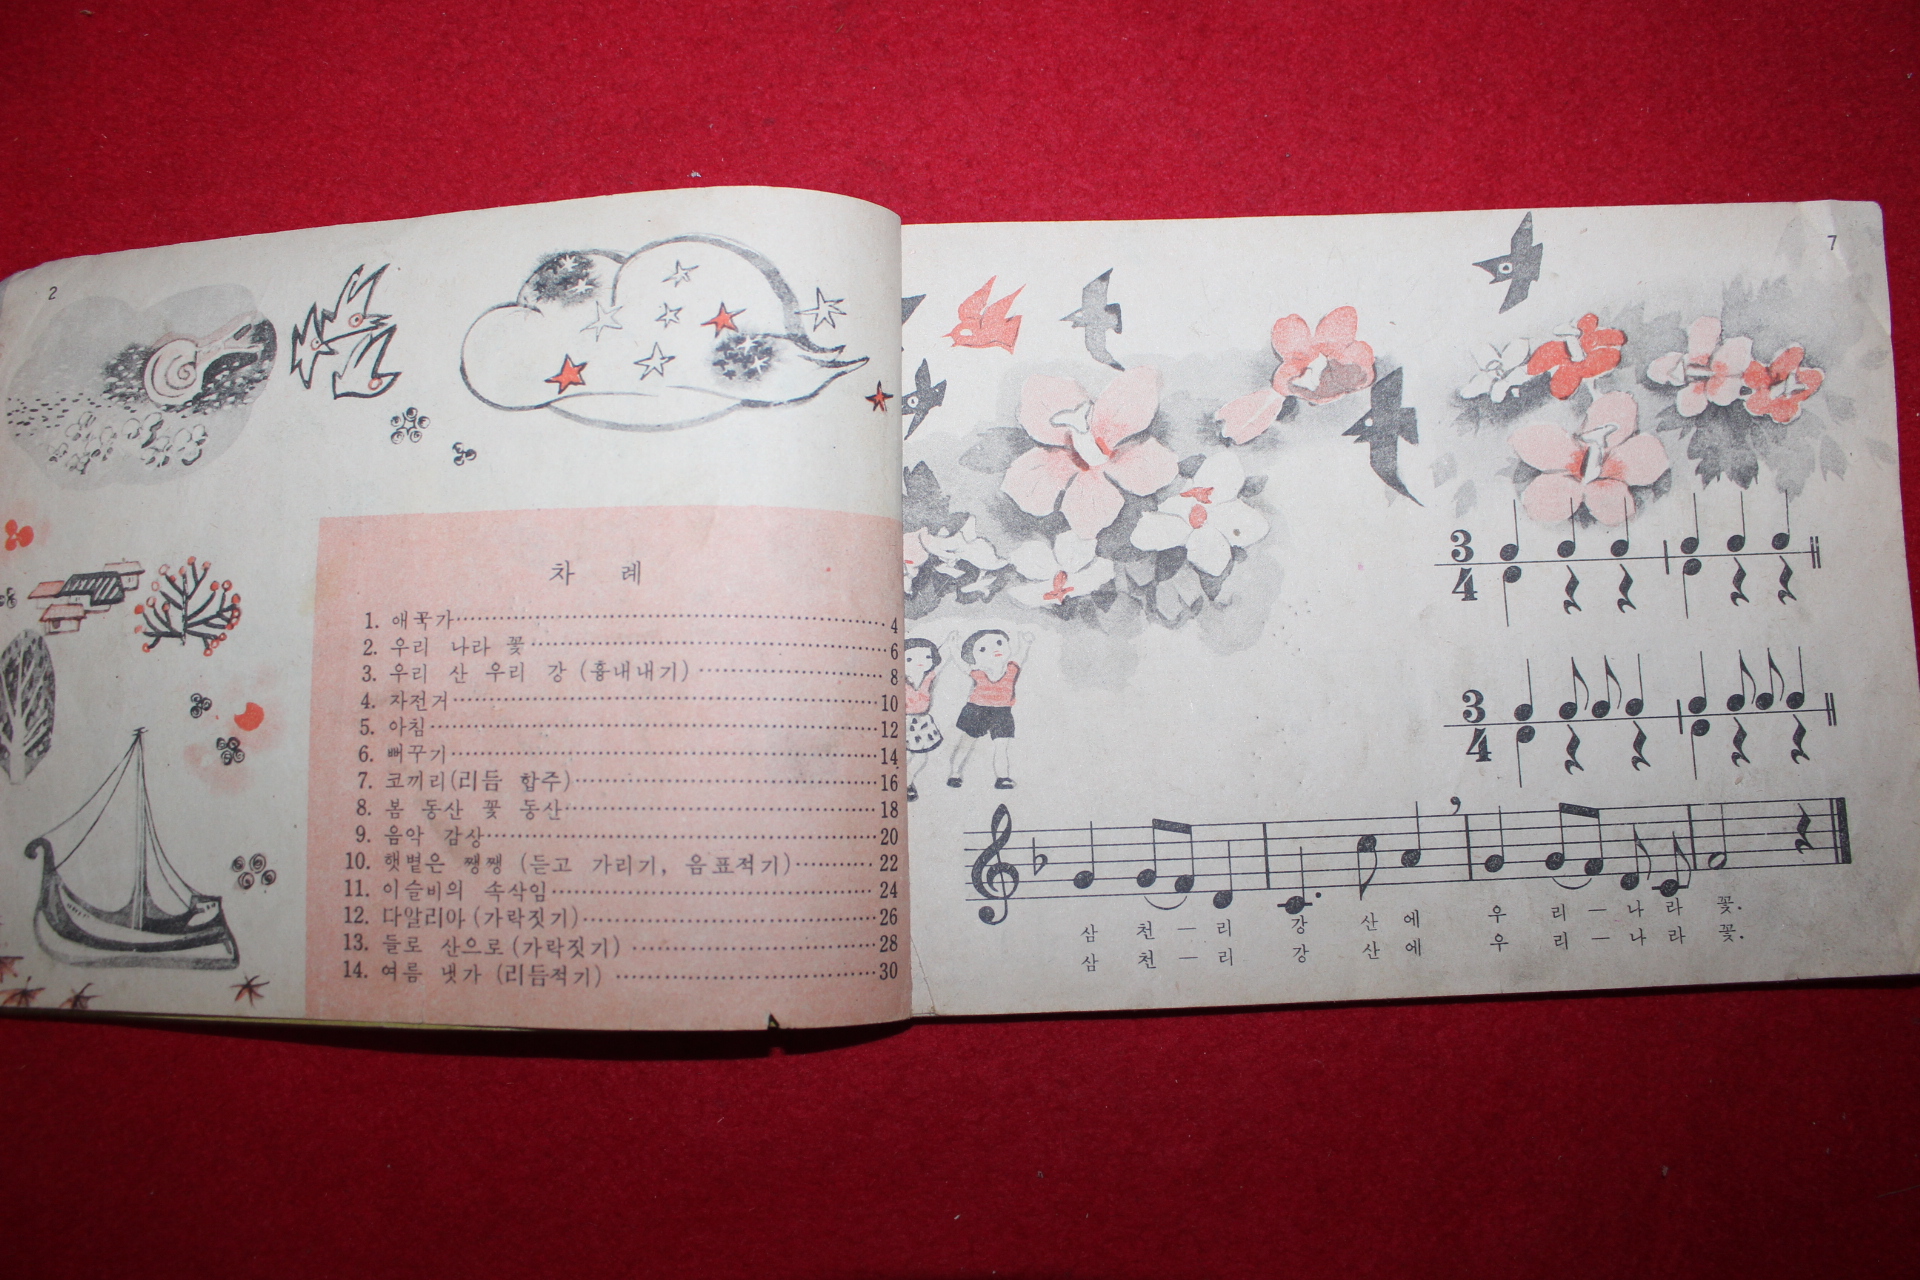 2
차 례
1. 애국가 4
2. 우리 나라 꽃 6
3. 우리 산 우리 강 (흉내내기) 8
4. 자전거 10
5. 아침 12
6. 뻐꾸기 14
7. 코끼리(리듬 합주) 16
8. 봄 동산 꽃 동산 18
9. 음악 감상 20
10. 햇볕은 쨍쨍 (듣고 가리기, 음표적기) 22
11. 이슬비의 속삭임 24
12. 다알리아 (가락짓기) 26
13. 들로 산으로 (가락짓기) 28
14. 여름 냇가 (리듬적기) 30
7
3
4
3
4
삼 천 — 리 강 산 에 우 리 — 나 라 꽃.
삼 천 — 리 강 산 에 우 리 — 나 라 꽃.